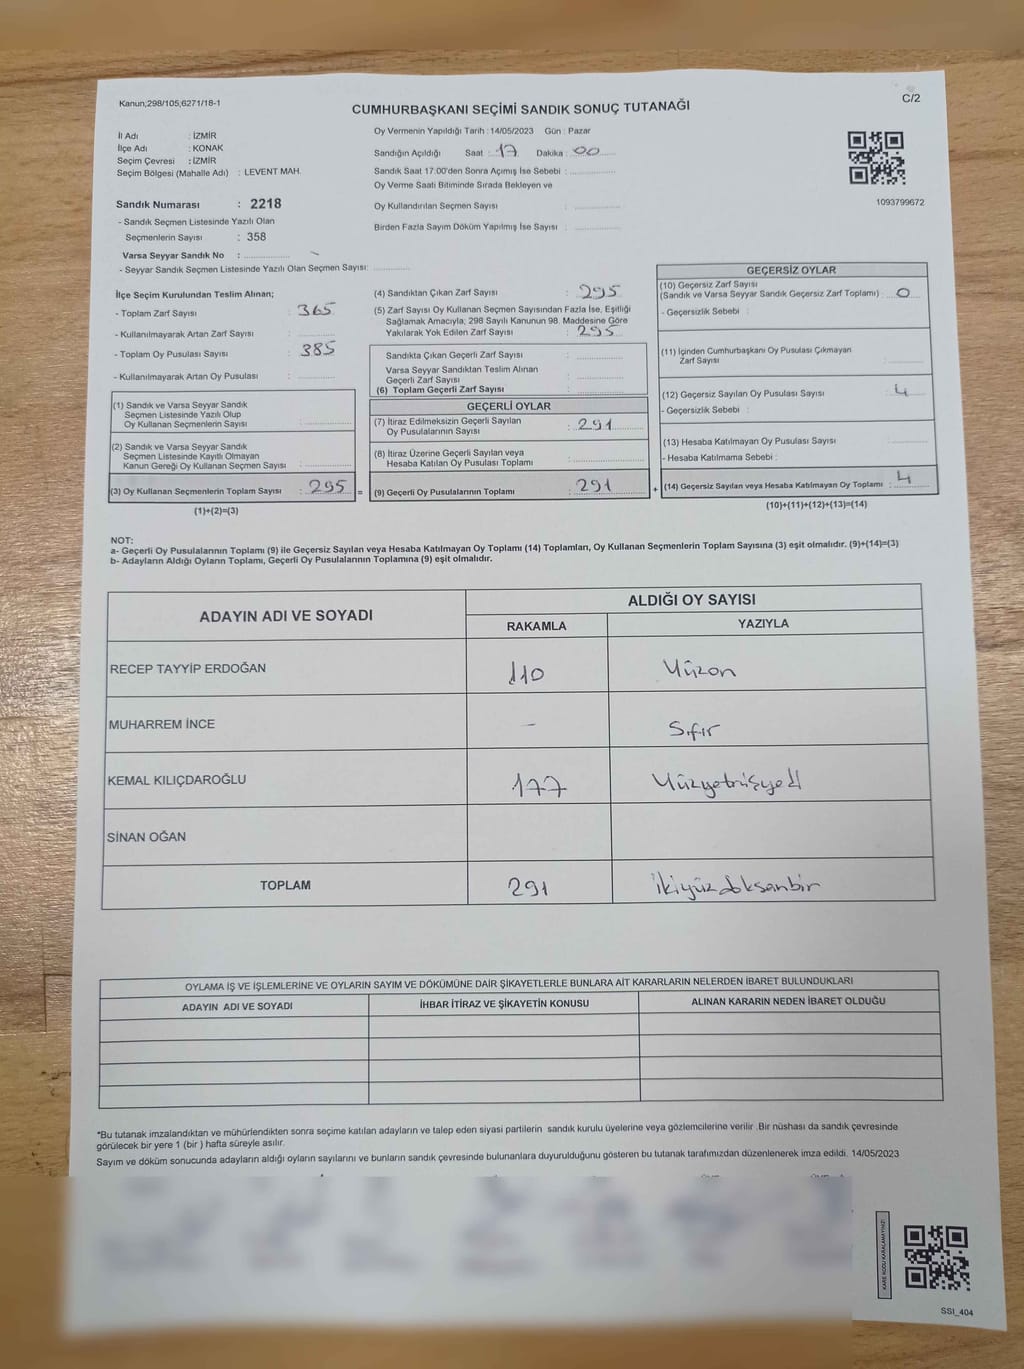 Kanun;298/105;6271/18-1
C/2
CUMHURBAŞKANI SEÇİMİ SANDIK SONUÇ TUTANAĞI
İl Adı : İZMİR
İlçe Adı : KONAK
Seçim Çevresi : İZMİR
Seçim Bölgesi (Mahalle Adı) : LEVENT MAH.
Sandık Numarası : 2218
- Sandık Seçmen Listesinde Yazılı Olan
Seçmenlerin Sayısı : 358
Varsa Seyyar Sandık No :
- Seyyar Sandık Seçmen Listesinde Yazılı Olan Seçmen Sayısı:
Oy Vermenin Yapıldığı Tarih : 14/05/2023 Gün : Pazar
Sandığın Açıldığı Saat : 17 Dakika : 00
Sandık Saat 17.00'den Sonra Açımış İse Sebebi :
Oy Verme Saati Bitiminde Sırada Bekleyen ve
Oy Kullandırılan Seçmen Sayısı :
Birden Fazla Sayım Döküm Yapılmış İse Sayısı :
1093799672
İlçe Seçim Kurulundan Teslim Alınan;
- Toplam Zarf Sayısı : 365
- Kullanılmayarak Artan Zarf Sayısı :
- Toplam Oy Pusulası Sayısı : 385
- Kullanılmayarak Artan Oy Pusulası :
(1) Sandık ve Varsa Seyyar Sandık
Seçmen Listesinde Yazılı Olup
Oy Kullanan Seçmenlerin Sayısı :
(2) Sandık ve Varsa Seyyar Sandık
Seçmen Listesinde Kayıtlı Olmayan
Kanun Gereği Oy Kullanan Seçmen Sayısı :
(3) Oy Kullanan Seçmenlerin Toplam Sayısı : 295 =
(1)+(2)=(3)
(4) Sandıktan Çıkan Zarf Sayısı : 295
(5) Zarf Sayısı Oy Kullanan Seçmen Sayısından Fazla İse, Eşitliği
Sağlamak Amacıyla; 298 Sayılı Kanunun 98. Maddesine Göre
Yakılarak Yok Edilen Zarf Sayısı : 295
Sandıkta Çıkan Geçerli Zarf Sayısı :
Varsa Seyyar Sandıktan Teslim Alınan
Geçerli Zarf Sayısı :
(6) Toplam Geçerli Zarf Sayısı :
GEÇERLİ OYLAR
(7) İtiraz Edilmeksizin Geçerli Sayılan
Oy Pusulalarının Sayısı : 291
(8) İtiraz Üzerine Geçerli Sayılan veya
Hesaba Katılan Oy Pusulası Toplamı :
(9) Geçerli Oy Pusulalarının Toplamı : 291 +
GEÇERSİZ OYLAR
(10) Geçersiz Zarf Sayısı
(Sandık ve Varsa Seyyar Sandık Geçersiz Zarf Toplamı) : 0
- Geçersizlik Sebebi :
(11) İçinden Cumhurbaşkanı Oy Pusulası Çıkmayan
Zarf Sayısı :
(12) Geçersiz Sayılan Oy Pusulası Sayısı : 4
- Geçersizlik Sebebi :
(13) Hesaba Katılmayan Oy Pusulası Sayısı :
- Hesaba Katılmama Sebebi :
(14) Geçersiz Sayılan veya Hesaba Katılmayan Oy Toplamı : 4
(10)+(11)+(12)+(13)=(14)
NOT:
a- Geçerli Oy Pusulalarının Toplamı (9) ile Geçersiz Sayılan veya Hesaba Katılmayan Oy Toplamı (14) Toplamları, Oy Kullanan Seçmenlerin Toplam Sayısına (3) eşit olmalıdır. (9)+(14)=(3)
b- Adayların Aldığı Oyların Toplamı, Geçerli Oy Pusulalarının Toplamına (9) eşit olmalıdır.
ADAYIN ADI VE SOYADI
ALDIĞI OY SAYISI
RAKAMLA YAZIYLA
RECEP TAYYİP ERDOĞAN 110 Yüzon
MUHARREM İNCE - Sıfır
KEMAL KILIÇDAROĞLU 177 Yüzyetmişyedi
SİNAN OĞAN
TOPLAM 291 İkiyüzdoksanbir
OYLAMA İŞ VE İŞLEMLERİNE VE OYLARIN SAYIM VE DÖKÜMÜNE DAİR ŞİKAYETLERLE BUNLARA AİT KARARLARIN NELERDEN İBARET BULUNDUKLARI
ADAYIN ADI VE SOYADI İHBAR İTİRAZ VE ŞİKAYETİN KONUSU ALINAN KARARIN NEDEN İBARET OLDUĞU
*Bu tutanak imzalandıktan ve mühürlendikten sonra seçime katılan adayların ve talep eden siyasi partilerin sandık kurulu üyelerine veya gözlemcilerine verilir .Bir nüshası da sandık çevresinde
görülecek bir yere 1 (bir ) hafta süreyle asılır.
Sayım ve döküm sonucunda adayların aldığı oyların sayılarını ve bunların sandık çevresinde bulunanlara duyurulduğunu gösteren bu tutanak tarafımızdan düzenlenerek imza edildi. 14/05/2023
KARE KODU KARALAMAYINIZ!
SSI_404